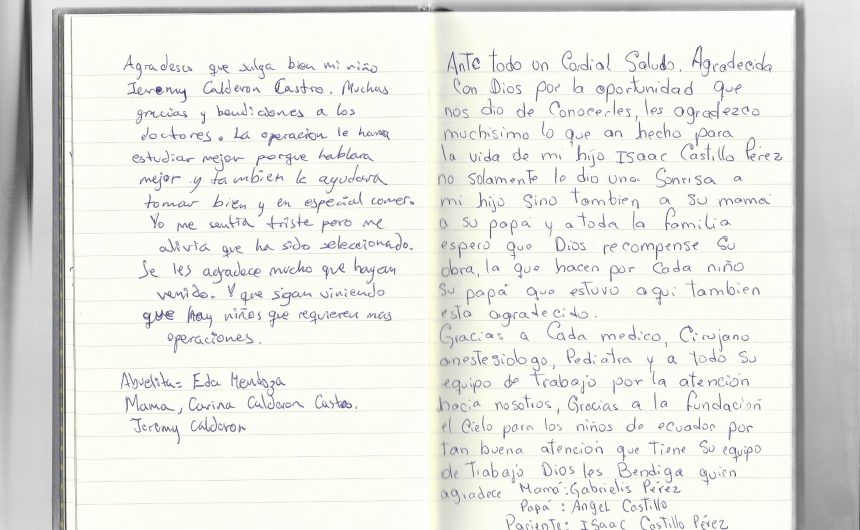 Agradesco que salga bien mi niño
Jeremy Calderon Castro. Muchas
gracias y bendiciones a los
doctores. La operacion le hara
estudiar mejor porque hablara
mejor y tambien le ayudara
tomar bien y en especial comer.
Yo me sentia triste pero me
alivia que ha sido seleccionado.
Se les agradece mucho que hayan
venido. Y que sigan viniendo
que hay niños que requieren mas
operaciones.
Abuelita = Eda Mendoza
Mama, Carina Calderon Castro.
Jeremy Calderon
Ante todo un Cordial Saludo. Agradecida
Con Dios por la oportunidad que
nos dio de Conocerles, les agradezco
muchisimo lo que an hecho para
la vida de mi hijo Isaac Castillo Pérez
no solamente le dio una Sonrisa a
mi hijo Sino tambien a su mamá
a su papá y a toda la familia
espero que Dios recompense Su
obra, la que hacen por Cada niño
Su papá que estuvo aqui tambien
esta agradecido.
Gracias a Cada medico, Cirujano
anestesiologo, Pediatra y a todo Su
equipo de Trabajo por la atención
hacia nosotros, Gracias a la fundación
el Cielo para los niños de ecuador por
tan buena atención que Tiene Su equipo
de Trabajo Dios les Bendiga quien
agradece Mamá: Gabrielis Pérez
Papá: Angel Castillo
Paciente: ISaac Castillo Pérez